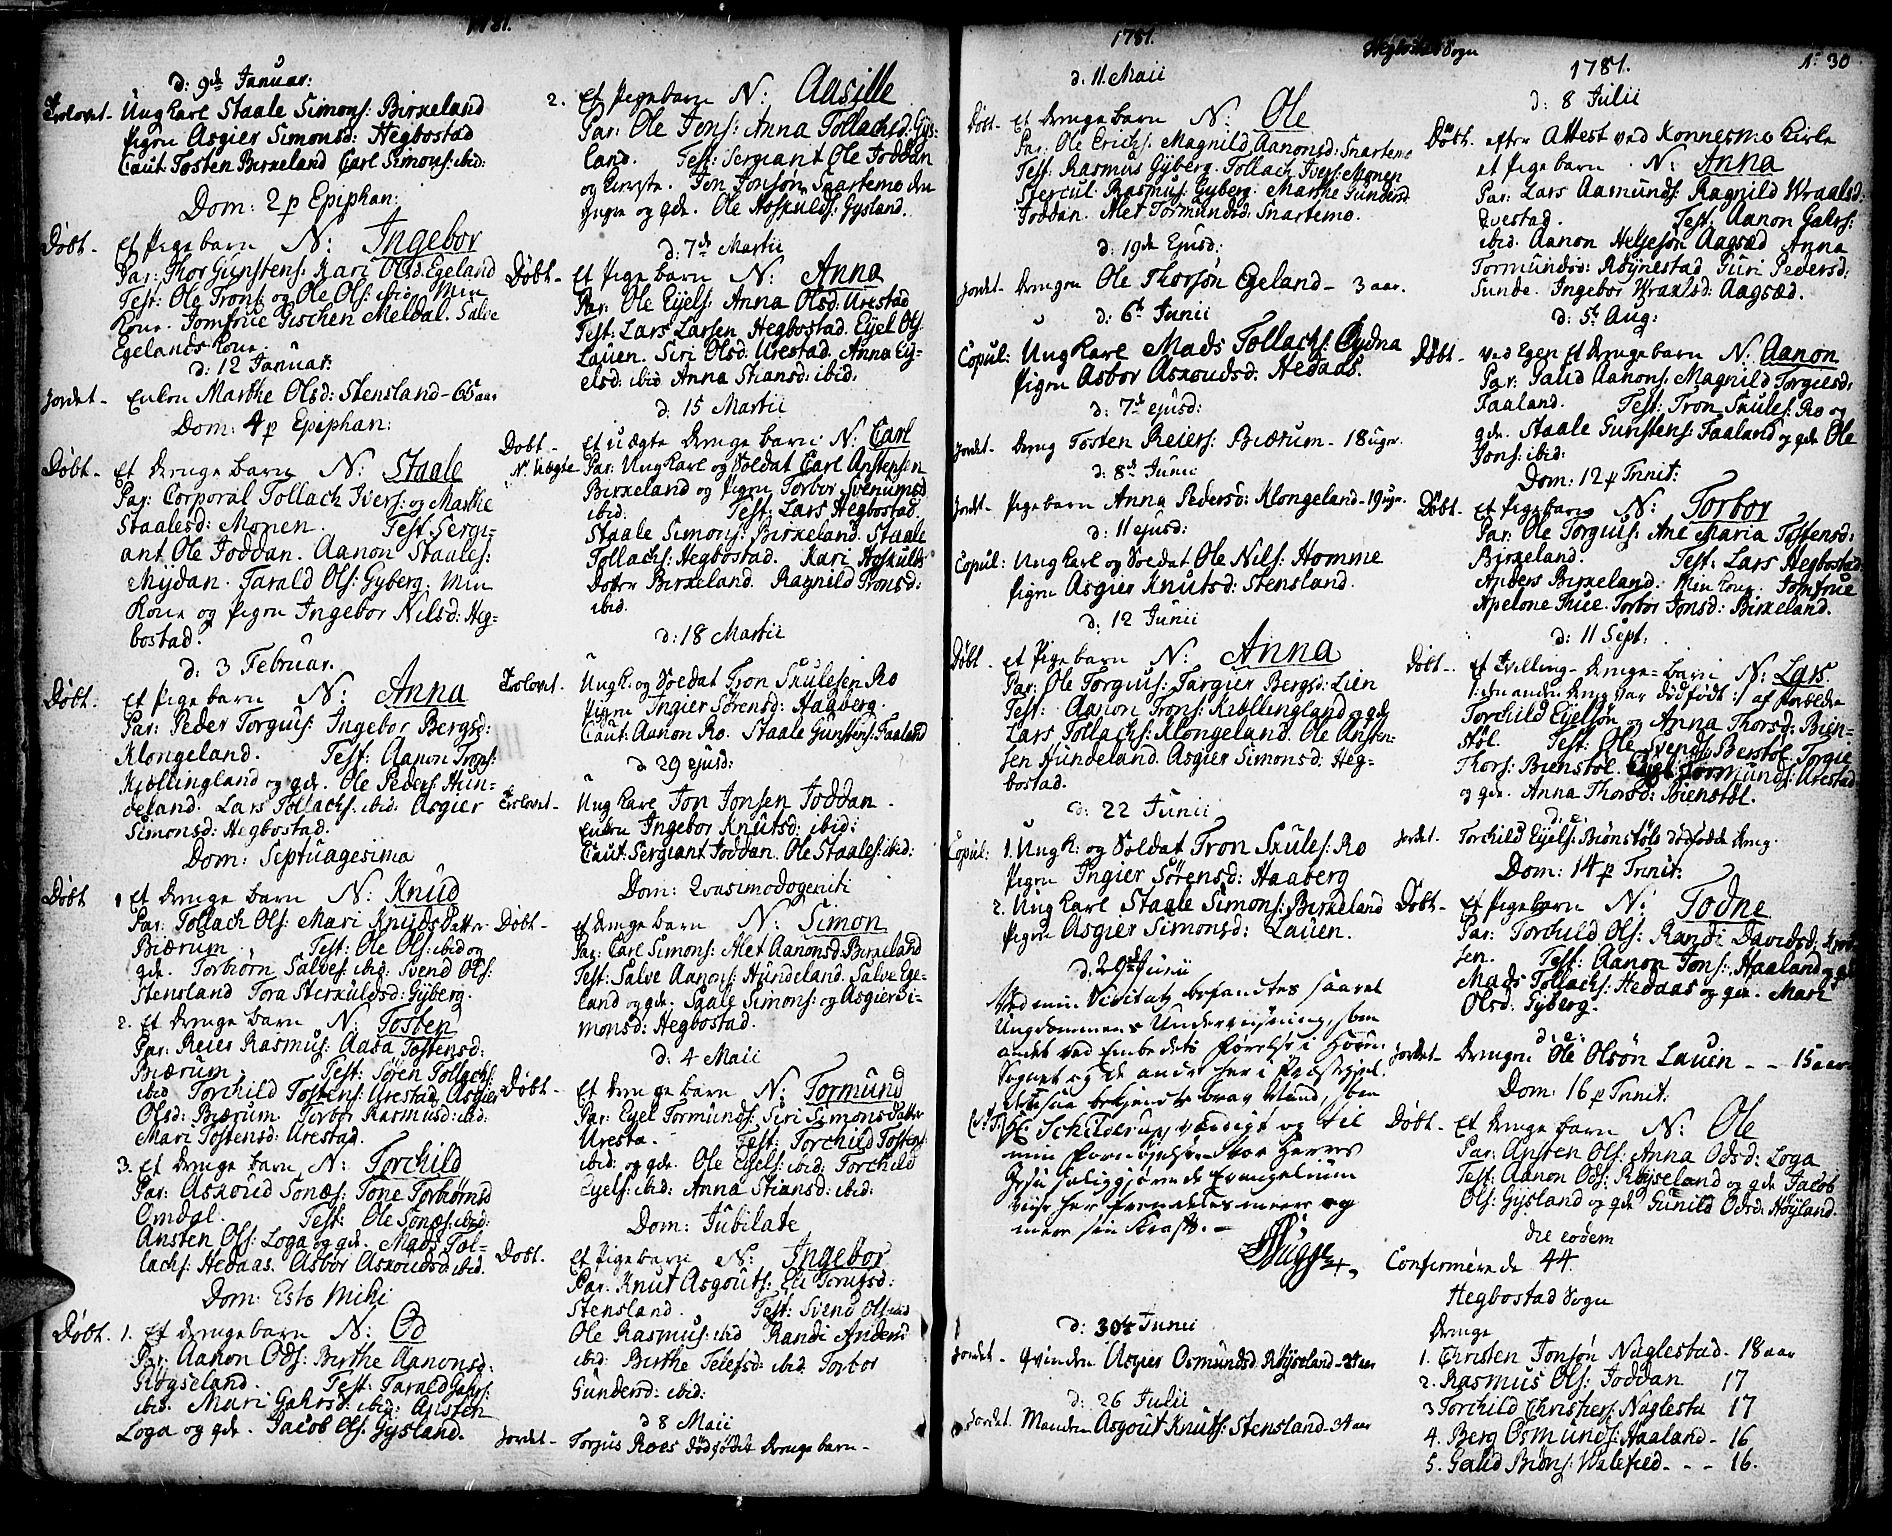 1781.
d: 9de Januar:
Trolovet- Ungkarl Staale Simons: Birkeland
Pigen Asgier Simonsd: Hegbostad
Caut: Tosten Birkeland Carl Simons: ibid:
Dom: 2 p Epiphan:
Døbt- Et Pigebarn N: Ingebor
Par: Thor Gunstens: Kari Olsd: Egeland
Test: Ole Trons: og Ole Ols: ibid Min
Kone. Jomfrue Gischen Meldal. Salve
Egelands Kone.
d: 12 Januar:
Jordet- Enken Marthe Olsd: Stensland - 65 aar
Dom: 4 p Epiphan:
Døbt- Et Drengebarn N: Staale
Par: Corporal Tollach Ivers: og Marthe
Staalesd: Monen. Test: Sergi-
ant Ole Joddan. Aanon Staales:
Mydan. Tarald Ols: Gyberg. Min
Kone og Pigen Ingebor Nilsd: Heg-
bostad.
d: 3 Februar.
Døbt: et Pigebarn N: Anna
Par: Peder Torgius: Ingebor Bergsd:
Klongeland. Test: Aanon Trons:
Kiællingland og gde. Ole Peders: Hun-
deland. Lars Tollachs: ibid: Asgier
Simonsd: Hegbostad.
Dom: Septuagesima
Døbt 1 Et Drenge barn N: Knud
Par: Tollach Ols: Mari Knuds Datter
Biærum. Test: Ole Ols: ibid og
gde. Torbiørn Salves: ibid: Svend Ols:
Stensland Tora Sterkuldsd: Gyberg.
2. Et Drenge barn N: Tosten
Par: Reier Rasmus: Aasa Tostensd:
Biærum. Test: Søren Tollachs:
ibid Torchild Tostens: Urestad, Asgier
Olsd: Biærum. Torbor Rasmusd: ibid:
Mari Tostensd: Urestad.
3. Et Drenge barn N: Torchild
Par: Askoud Sones: Tone Torbiørnsd
Omdal. Test: Ole Sones: ibid:
Ansten Ols: Loga og gde. Mads Tol-
lachs: Hedaas. Asbor Askoudsd: ibid.
Dom: Esto Mihi
Døbt. 1. Et Drengebarn N: Od
Par: Aanon Ods: Birthe Aanonsd:
Røyseland. Test: Tarald Gahrs:
ibid. Mari Gahrsd: ibid: Ansten
Loga og gde. Jacob Ols: Gysland.
2. Et Pigebarn N: Aasille
Par: Ole Jons: Anna Tollachsd: Gys-
land. Test: Sergiant Ole Joddan
og Jon Jonsøn Snartemo den
Yngre og gde. Ole Hoskulds: Gysland.
d: 7de Martii
Døbt- Et Pigebarn N: Anna
Par: Ole Eyels: Anna Olsd: Urestad
Test: Lars Larsen Hegbostad. Eyel Ols:
Lauen. Siri Olsd: Urestad. Anna Ey-
elsd: ibid Anna Stiansd: ibid:
d: 15 Martii
Døbt- Et uægte Drenge barn N: Carl
No Uægte Par: Ungkarl og Soldat Carl Anstensen
Birkeland og Pigen Torbor Svenumsd
ibid. Test: Lars Hegbostad.
Staale Simons: Birkeland. Staale
Tollachs: Hegbostad. Kari Hoskulds
Dotter Birkeland. Ragnild Tronsd:
ibid.
d: 18 Martii
Trolovet. Ungk: og Soldat Tron Skulesen Ro
Pigen Ingier Sørensd: Haaberg.
Caut: Aanon Ro. Staale Gunstens: Faaland
d 29 ejusd:
Trolovet- Ungkarl Jon Jonsen Joddan.
Enken Ingebor Knutsd: ibid:
Caut: Sergiant Joddan. Ole Staales: ibid:
Dom: Quasimodogeniti
Døbt- et Drengebarn N: Simon
Par: Carl Simons: Alet Aanonsd: Birkeland
Test: Salve Aanons: Hundeland. Salve Ege-
land og gde. Staale Simons: og Asgier Si-
monsd: Hegbostad.
d: 4 Maii
Døbt- Et Drengebarn N: Tormund
Par: Eyel Tormunds: Siri Simons Datter
Uresta. Test: Torchild Tostens:
ibid: og gde. Ole Eyels: ibid: Torchild
Eyels: ibid: Anna Stiansd: ibid:
Dom: Jubilate
Døbt. Et Pigebarn N: Ingebor
Par. Knut Asgouts: Eli Torusd:
Stensland. Test: Svend Ols: ibid
Ole Rasmus: ibid Randi Andersd
ibid: Birthe Telefsd: ibid. Torbor
Gundersd: ibid:
d 8 Maii
Jordet- Torjus Roes dødfødde Drengebarn-
1781.
Hegbostad Sogn
d. 11 Maii
Døbt- Et Drengebarn N: Ole
Par: Ole Erichs: Magnild Aanonsd: Snartemo
Test: Rasmus Gyberg. Tollach Ivers: Monen
Stercul: Rasmus: Gyberg. Marthe Gundersd
Joddan. Alet Tormundsd: Snartemo.
d: 19de Ejusd:
Jordet- Drengen Ole Thorsøn Egeland - 3 aar.
d: 6te Junii
Copul: Ungkarl Mads Tollachs: Gydna
Pigen Asbor Askoudsd: Hedaas.
d: 7de ejusd:
Jordet- Dreng Tosten Reiers: Biærum - 18 ugr.
d: 8de Junii
Jordet- Pigebarn Anna Pedersd: Klongeland - 19 ugr.
d: 11 ejusd:
Copul: Ungkarl og Soldat Ole Nils: Homme
Pigen Asgier Knutsd: Stensland.
d: 12 Junii
Døbt- et Pigebarn N: Anna
Par: Ole Torguis: Targier Bergsd: Lien
Test: Aanon Trons: Kiællingland og gde
Lars Tollachs: Klongeland. Ole Ansten-
sen Hundeland. Asgier Simonsd: Heg-
bostad.
d: 22 Junii
Copul: 1. Ungk: og Soldat Tron Skules: Ro
Pigen Ingier Sørensd: Haaberg
2. Ungkarl Staale Simons: Birkeland
Pigen Asgier Simonsd: Lauen.
d: 29de Junii
Ved min Visitatz befandtes saavel
Ungdommens Underviisning, som
andet ved Embedets Førelse i Hoved
Sognet og de andre her i Præstegiel.
som
Hr Schilderup værdigt og til
min Fornøjelse. Vor Herres
Jesu saliggiørende Evangelium
viise her fremdeles meere og
meere sin Kraft. -
d: 30te Junii
Jordet- Qvinden Asgier Osmundsd: Røyseland - aar
d: 26 Julii
Jordet. Manden Asgout Knuts: Stensland - 34 aar
1781.
N: 30
d: 8 Julii
Døbt. efter Attest ved Konnesmo Kirke
et Pigebarn N: Anna
Par: Lars Aasmunds: Ragnild Wraalsd:
Qvestad. Test: Aanon Gahrs:
ibid. Aanon Helgesøn Aagsæd Anna
Tormundsd: Røynestad Guri Pedersd:
Sunde. Ingebor Wraalsd: Aagsæd.
d: 5te Aug:
Døbt- ved Egen Et Drengebarn N: Aanon
Par: Gaud Aanons: Magnild Torgiesd:
Faaland. Test: Tron Skules: Ro og
gde. Staale Gunstens: Faaland og gde Ole
Jons: ibid:
Dom: 12 p Trinit:
Døbt- et Pigebarn N: Torbor
Par: Ole Torguis: Ane Maria Tostensd:
Birkeland. Test: Lars Hegbostad
Anders Birkeland. Min Kone. Jomfrue
Apelone Friie. Torbor Jonsd: Birkeland.
d: 11 Sept:
Døbt- Et Tvilling-Drenge-barn N: Lars
/: den anden Dreng var dødfødt :/ af Forældre
Torchild Eyelsøn og Anna Thorsd: Bien-
støl. Test: Ole Svends: Berstøl Torgie
Thors: Bienstøl. Eyel Tormunds: Urestad
og gde. Anna Thorsd: Bienstøl.
d: e:
Jordet. Torchild Eyels: Biønstøls dødfødde Dreng.
Dom: 14 p Trinit:
Døbt- et Pigebarn N: Todne
Par: Torchild Ols: Randi Davidsd:
sen. Test: Aanon Jons: Haaland og gde
Mads Tollachs: Hedaas og gde. Mari
Olsd: Gyberg.
d: e:
Jordet- Drengen Ole Olsøn Lauen - - 15 aar
Dom: 16 p Trinit:
Døbt- Et Drengebarn N: Ole
Par: Ansten Ols: Anna Odsd: Loga
Test: Aanon Ods: Røyseland og gde Jacob
Ols: Gysland og gde Gunild Odsd: Høyland.
die eodem
Confirmerede 44.
Hegbostad Sogn
Drenge
1. Christen Jonsøn Naglestad - 18 aar
2. Rasmus Ols: Joddan 17
3 Torchild Christens: Naglesta 17
4. Berg Osmunds: Haaland - 16
5. Gaud Biøns: Walefield - - - 16.